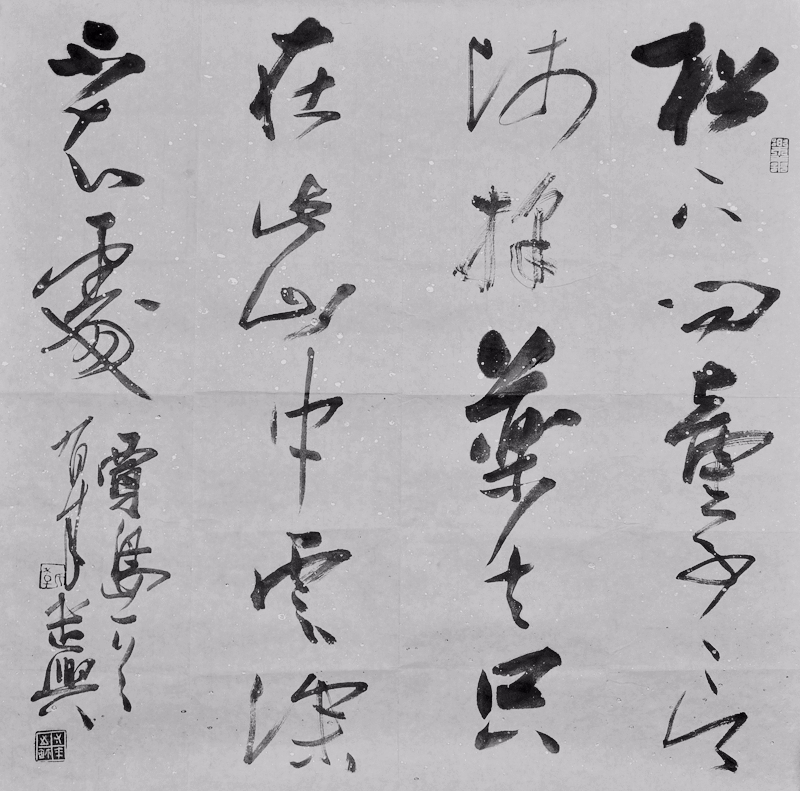 松下問童子言
師採藥去只
在此山中雲深
不知處
賈島